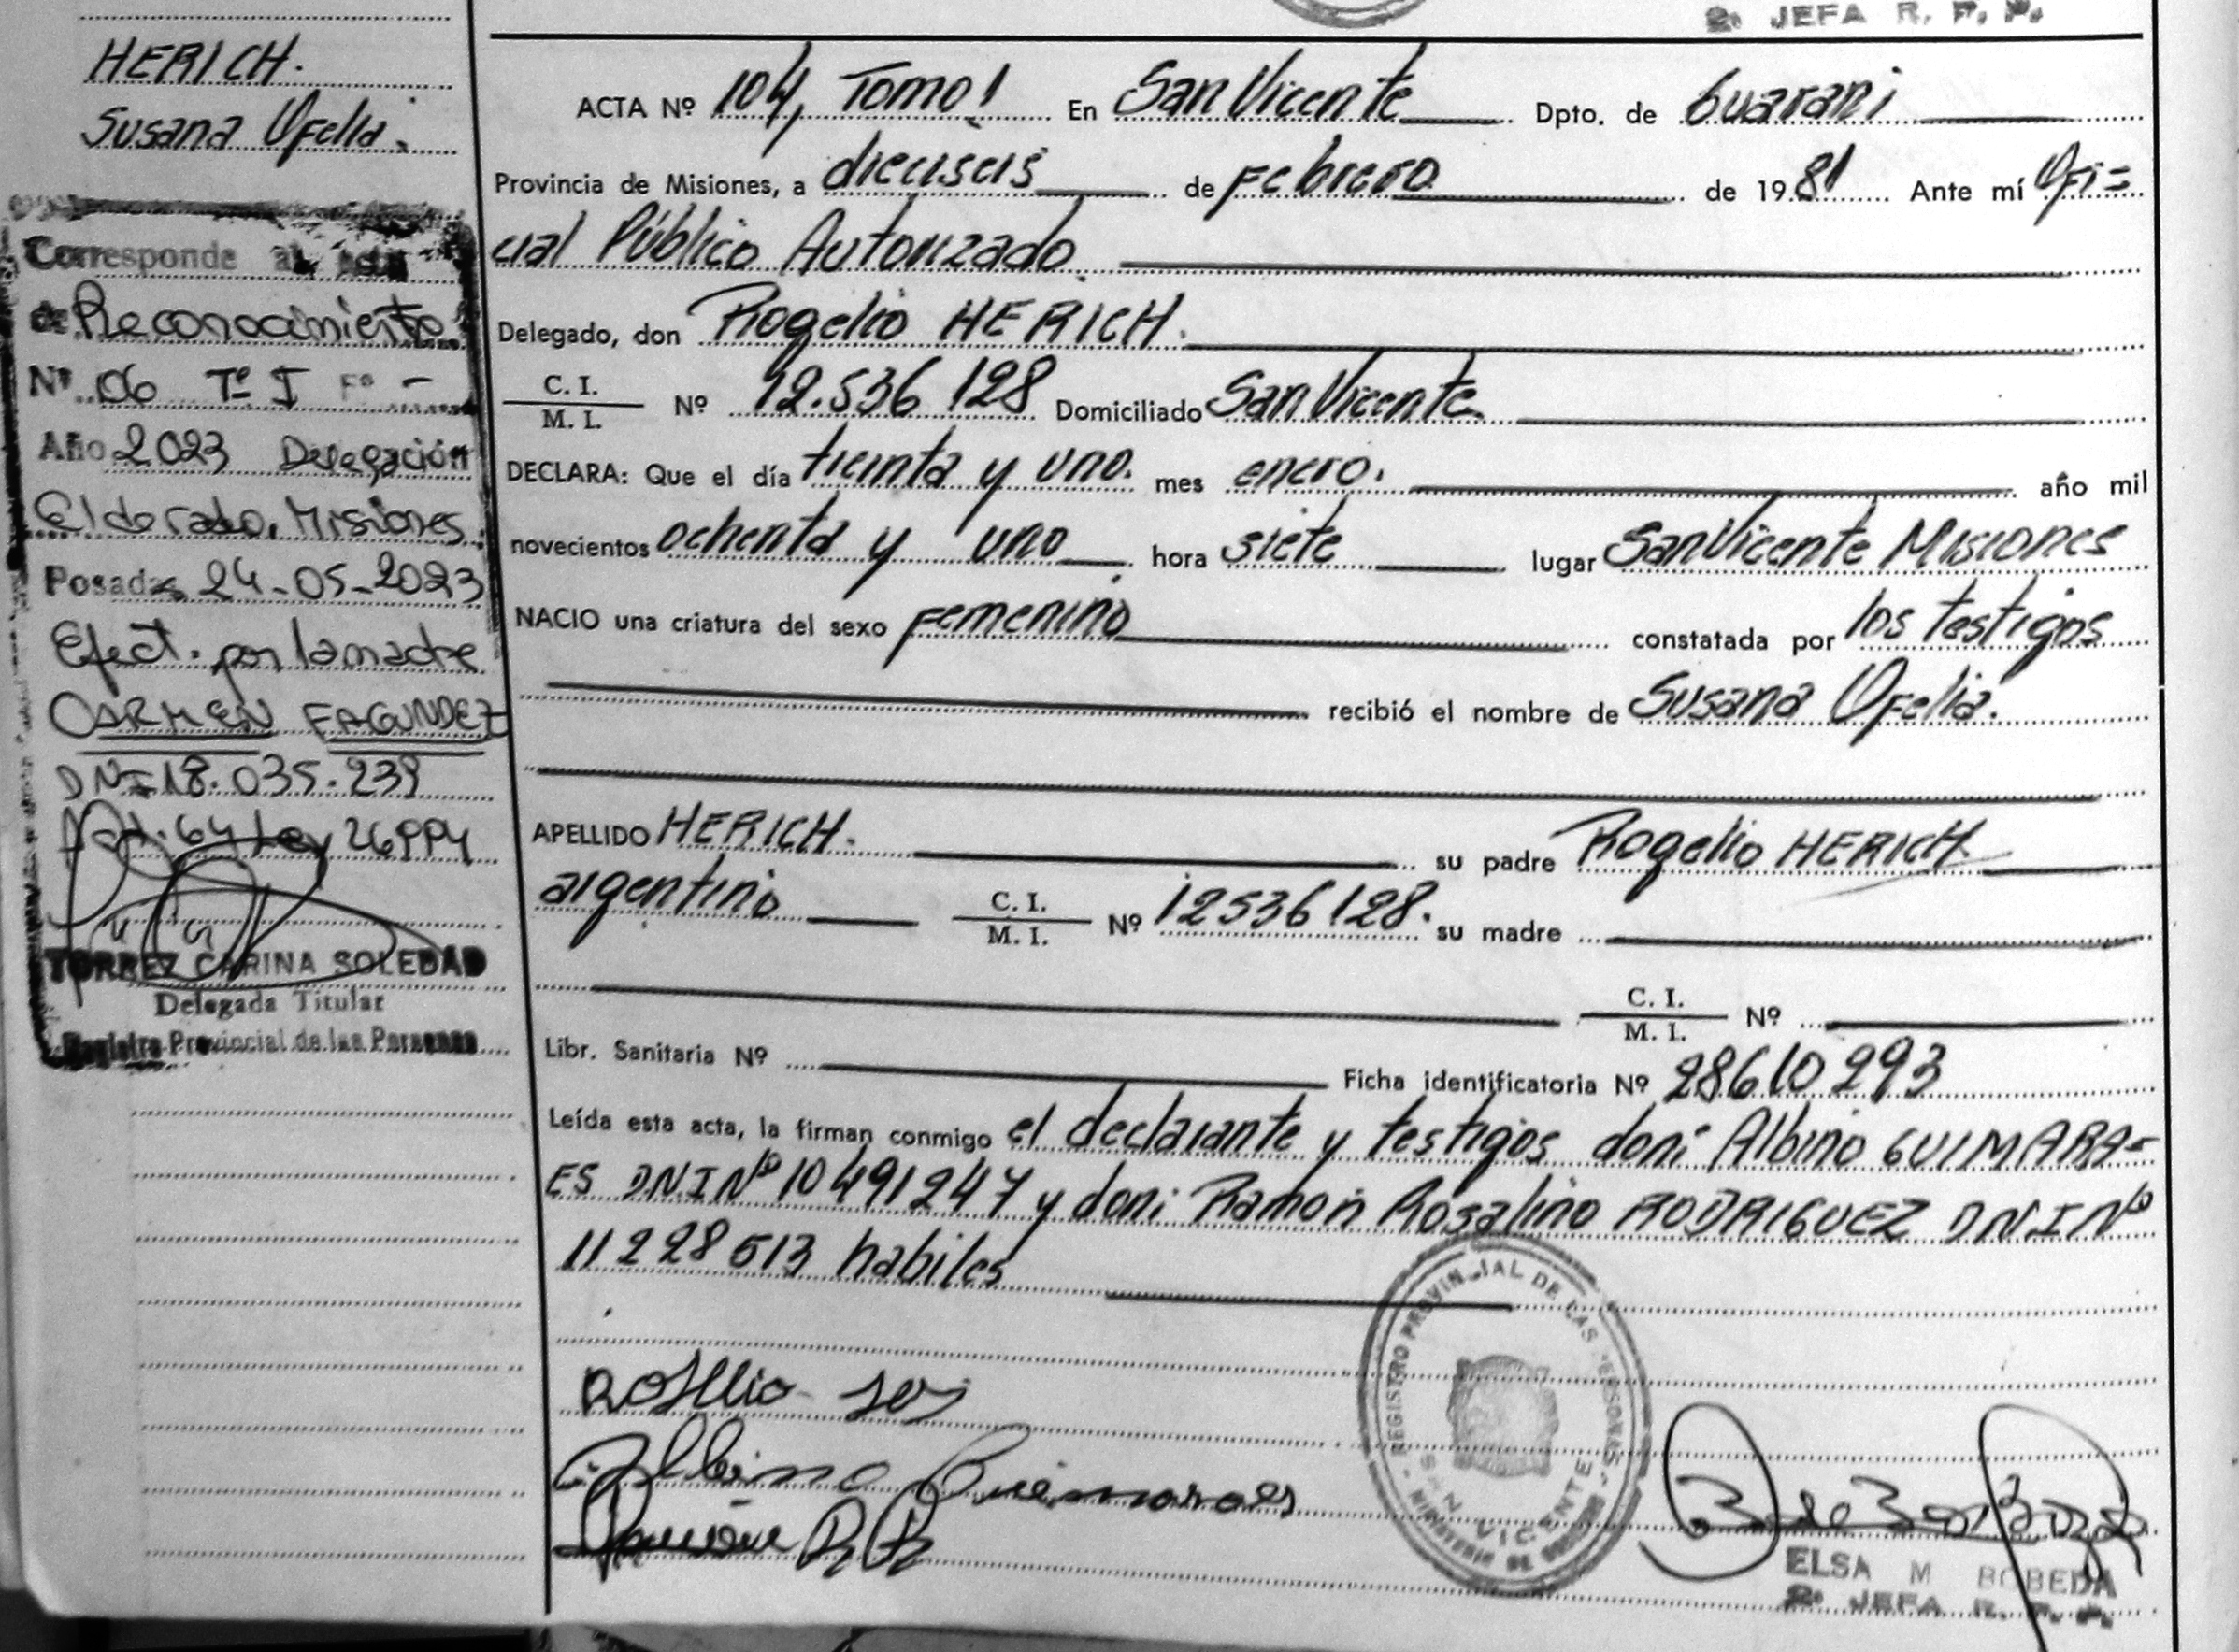 2ª JEFA R. P. P.
HERICH.
Susana Ofelia.
Corresponde al acta
de Reconocimiento
Nº 06 Tº I Fº -
Año 2023 Delegación
Eldorado, Misiones
Posadas 24-05-2023
Efect. por la madre
CARMEN FAGUNDEZ
DNI 18.035.239
Art. 64 Ley 26994
TORREZ CARINA SOLEDAD
Delegada Titular
Registro Provincial de las Personas
ACTA Nº 104, Tomo I En San Vicente Dpto. de Guarani
Provincia de Misiones, a dieciseis de Febrero de 1981 Ante mí Ofi=
cial Público Autorizado
Delegado, don Rogelio HERICH.
C. I.
M. I. Nº 12.536 128 Domiciliado San Vicente
DECLARA: Que el día treinta y uno. mes enero. año mil
novecientos ochenta y uno hora siete lugar San Vicente Misiones
NACIO una criatura del sexo Femenino constatada por los testigos
recibió el nombre de Susana Ofelia.
APELLIDO HERICH. su padre Rogelio HERICH
argentino C. I.
M. I. Nº 12536128. su madre
C. I.
M. I. Nº
Libr. Sanitaria Nº Ficha identificatoria Nº 28610293
Leída esta acta, la firman conmigo el declarante y testigos don: Albino GUIMARA=
ES D.N.I Nº 10491247 y don: Ramon Rosalino RODRIGUEZ DNI Nº
11228513 habiles
Albino Guimaraes
Ramón
REGISTRO PROVINCIAL DE LAS PERSONAS
SAN VICENTE
MINISTERIO DE GOBIERNO
ELSA M BOBEDA
2ª JEFA R. P. P.